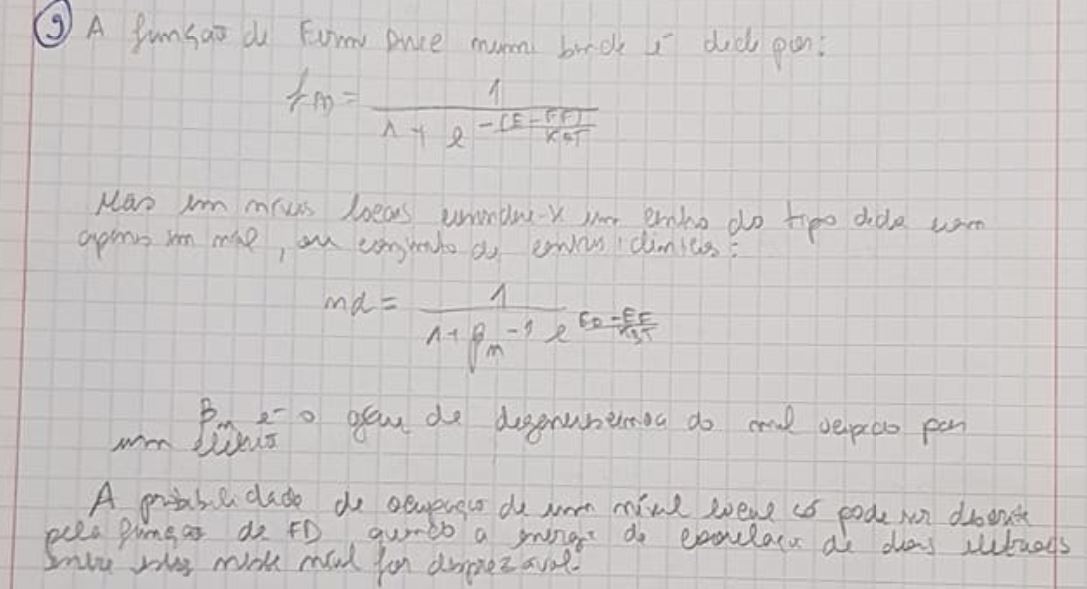 9 A função de Fermi Dirac numa banda é dada por:
f(E) = 1 / (1 + e^(-(E-EF)/KBT))
Mas em níveis locais um do tipo dador com
apenas um nível, ou conjunto de :
nd = 1 / (1 + βn^-1 e^((ED-EF)/KBT))
βn é o grau de degenerescência do nível ocupado por
um eletrão
A probabilidade de ocupação de um nível local só pode ser descrita
pela função de FD quando a energia de correlação de dois eletrões
entre nível for desprezável.